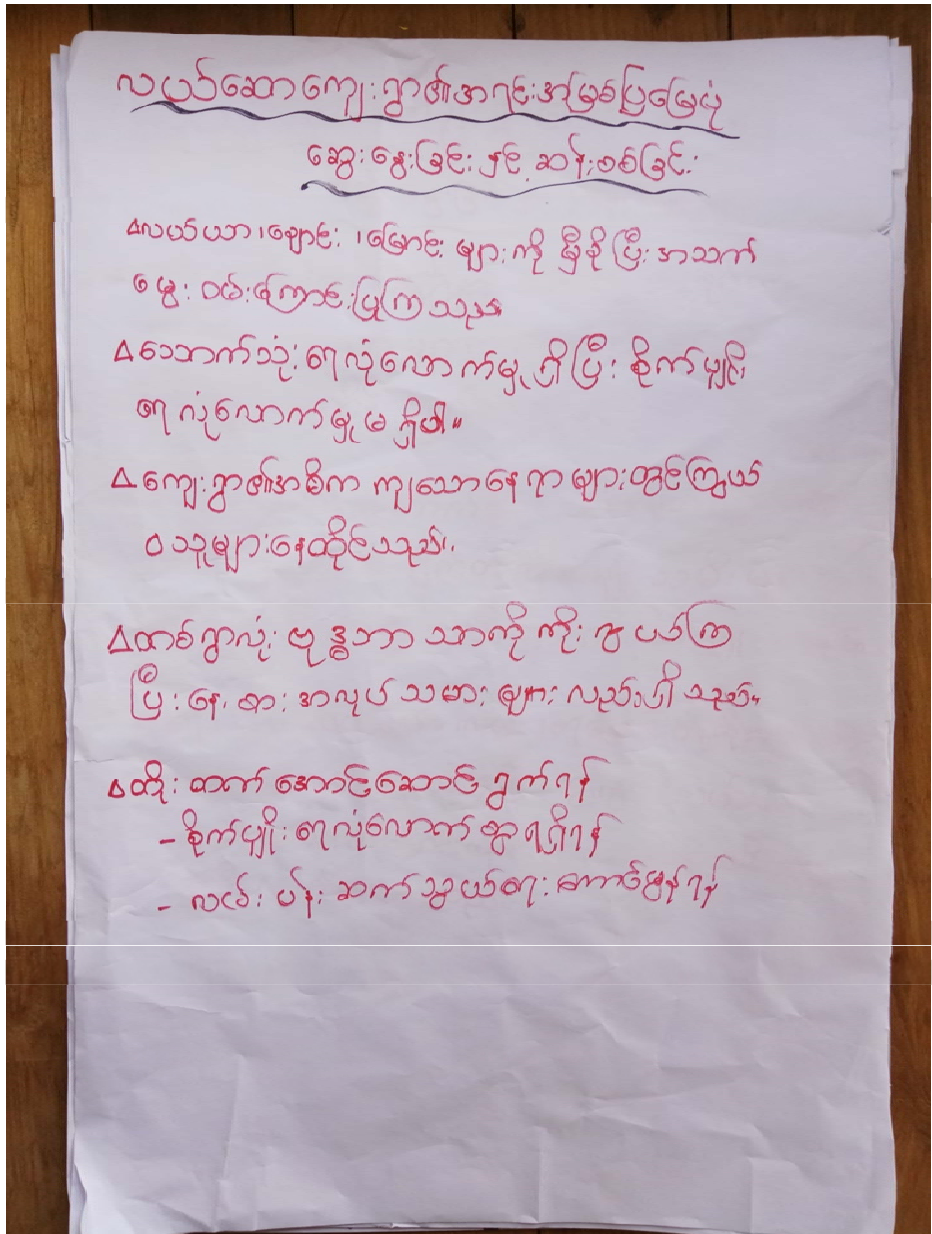 လယ်ဆောကျေးရွာ၏အရင်းအမြစ်ပြမြေပုံ
ဆွေးနွေးခြင်း နှင့် ဆန်းစစ်ခြင်း
∆လယ်ယာ၊ချောင်း ၊မြောင်း များကို မှီခို ပြီး အသက်
မွေး ဝမ်းကြောင်းပြုကြ သည်။
∆သောက်သုံး ရေလုံလောက်မှု ရှိ ပြီး စိုက်ပျိုး
ရေ လုံလောက်မှု မ ရှိပါ။
∆ကျေးရွာ၏အဓိက ကျသောနေရာ များတွင်ကြွယ်
ဝ သူများနေထိုင်သည်။
∆တစ်ရွာလုံး ဗုဒ္ဓဘာ သာကို ကိုး ကွယ်ကြ
ပြီး နေ့ စား အလုပ် သမား များ လည်းရှိ သည်။
∆တိုး တက် အောင်ဆောင် ရွက်ရန်
- စိုက်ပျိုး ရေလုံလောက် စွာ ရရှိရန်
- လမ်း ပန်း ဆက် သွယ်ရေး ကောင်မွန်ရန်